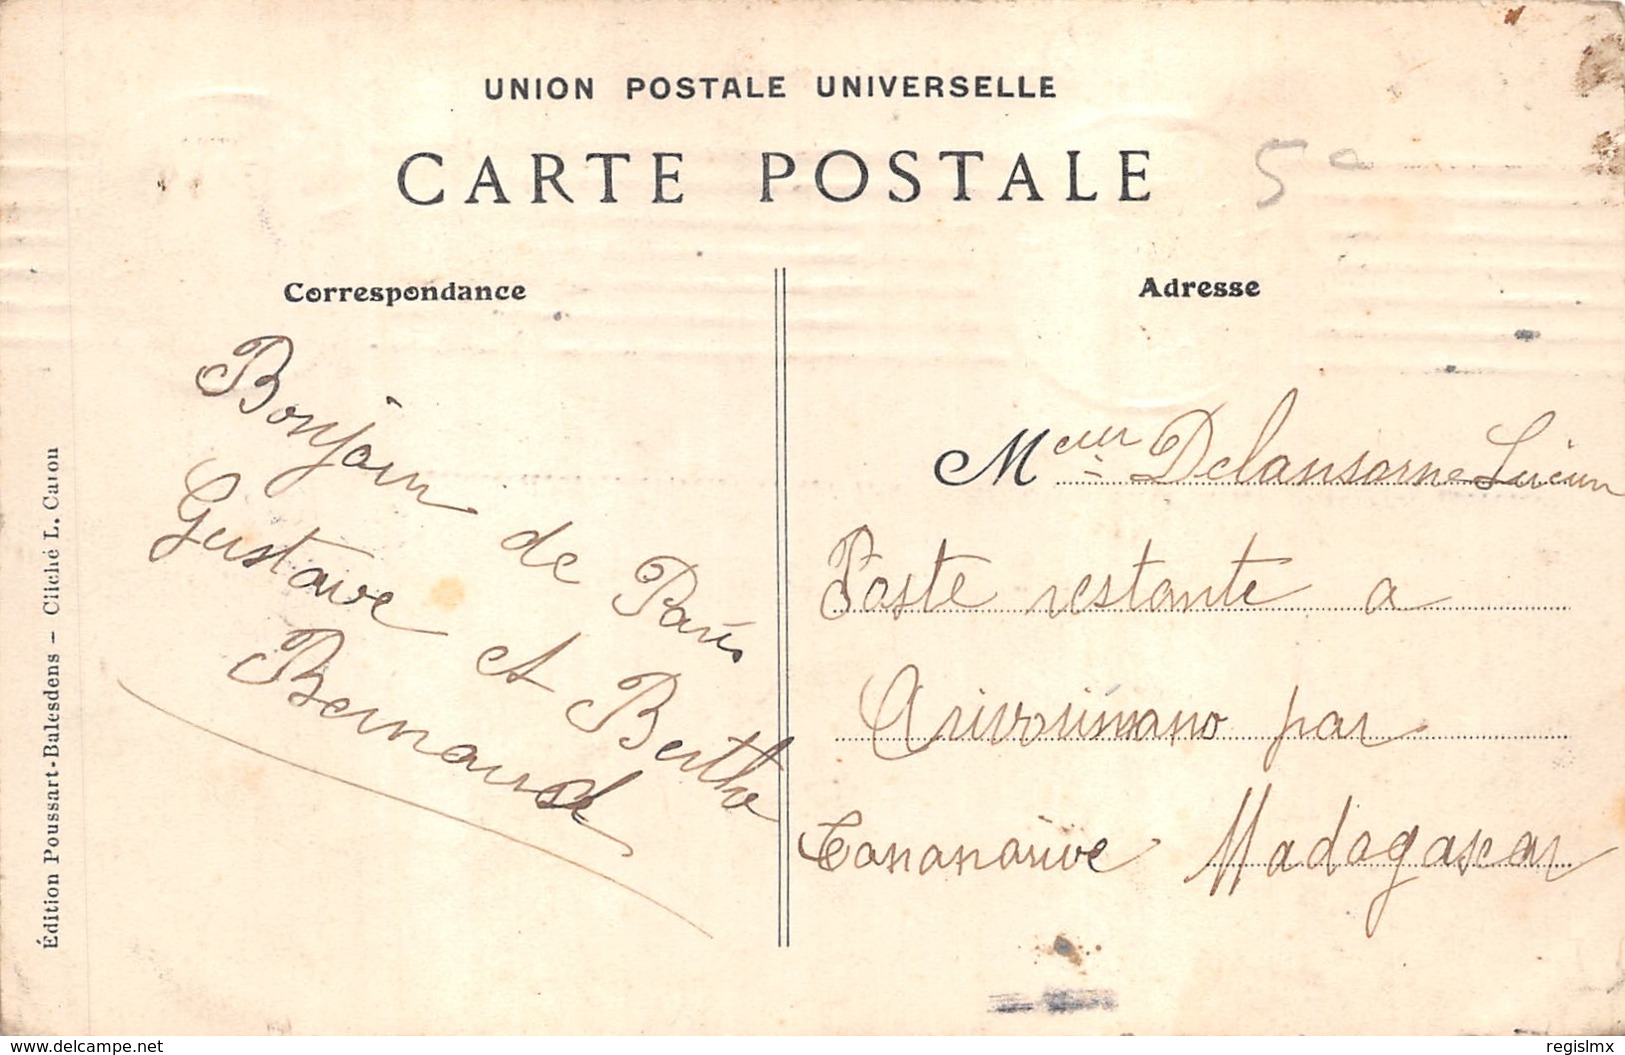 UNION POSTALE UNIVERSELLE
CARTE POSTALE
5
Correspondance
Bonjour de Paris
Gustave et Berthe
Bernard
Adresse
Mcieur Delansorne Lucien
Poste restante a
Arivonimano par
Tananarive Madagascar
Édition Poussart-Balesdens – Cliché L. Caron
www.delcampe.net
regislmx